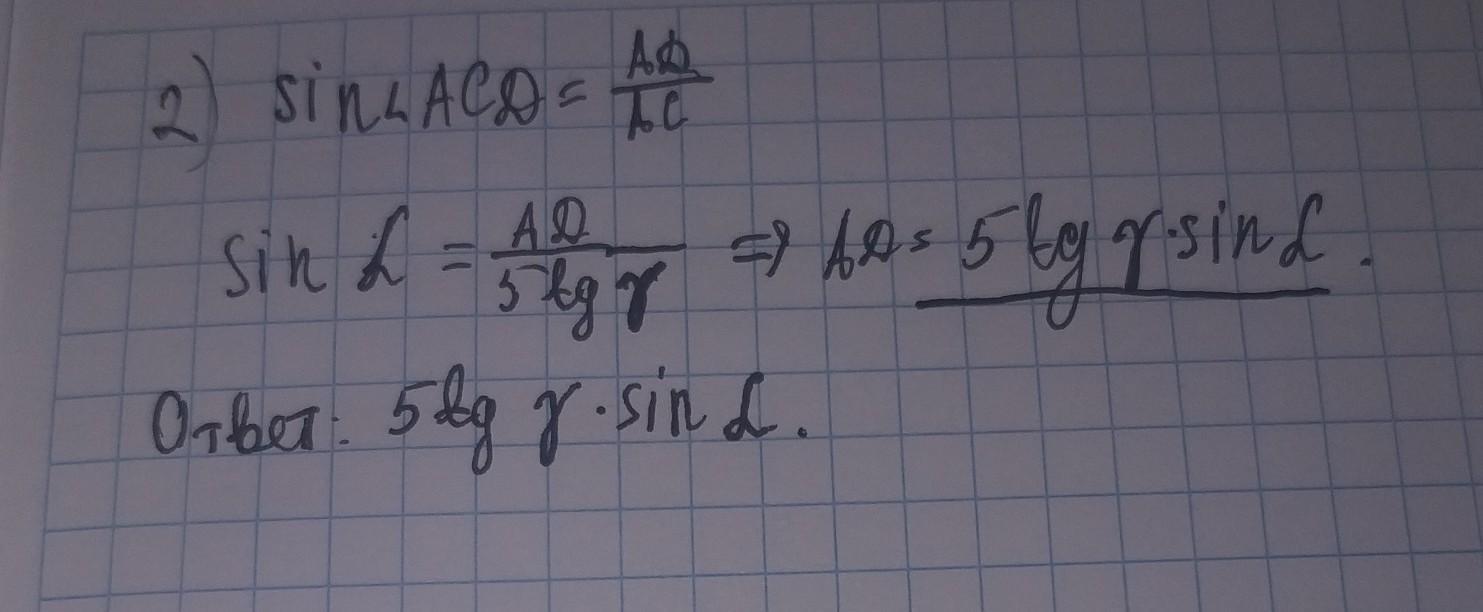 2) sin∠ACD = AD/AC
sin α = AD/(5 tg γ) ⇒ AD = 5 tg γ · sin α.
Ответ: 5 tg γ · sin α.